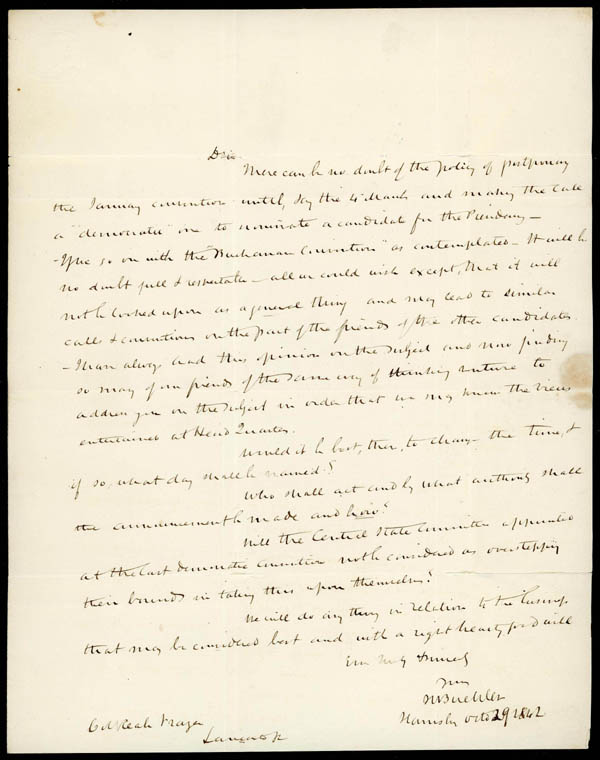 Dsir.
There can be no doubt of the policy of postponing
the January convention until, say the 4 March and making the call
a "democratic" one to nominate a candidate for the Presidency —
If we go on with the "Buchanan Convention" as contemplated — It will be
no doubt full & respectable — all we could wish except, that it will
not be looked upon as a general thing and may lead to similar
calls & conventions on the part of the friends of the other candidates.
— I have always had this opinion on the subject and now finding
so many of our friends of the same way of thinking venture to
address you on the subject in order that we may know the views
entertained at Head Quarters.
Would it be best, then, to change the time, &
if so, what day shall be named?
Who shall act and by what authority shall
the announcement be made and how?
Will the Central State Committee appointed
at the last democratic convention not be considered as overstepping
their bounds in taking this upon themselves?
We will do any thing in relation to the business
that may be considered best and with a right hearty good will
Friend
Yours
Buehler
Harrisbg Octo 29 1842
Col Reah Frazer
Lancaster